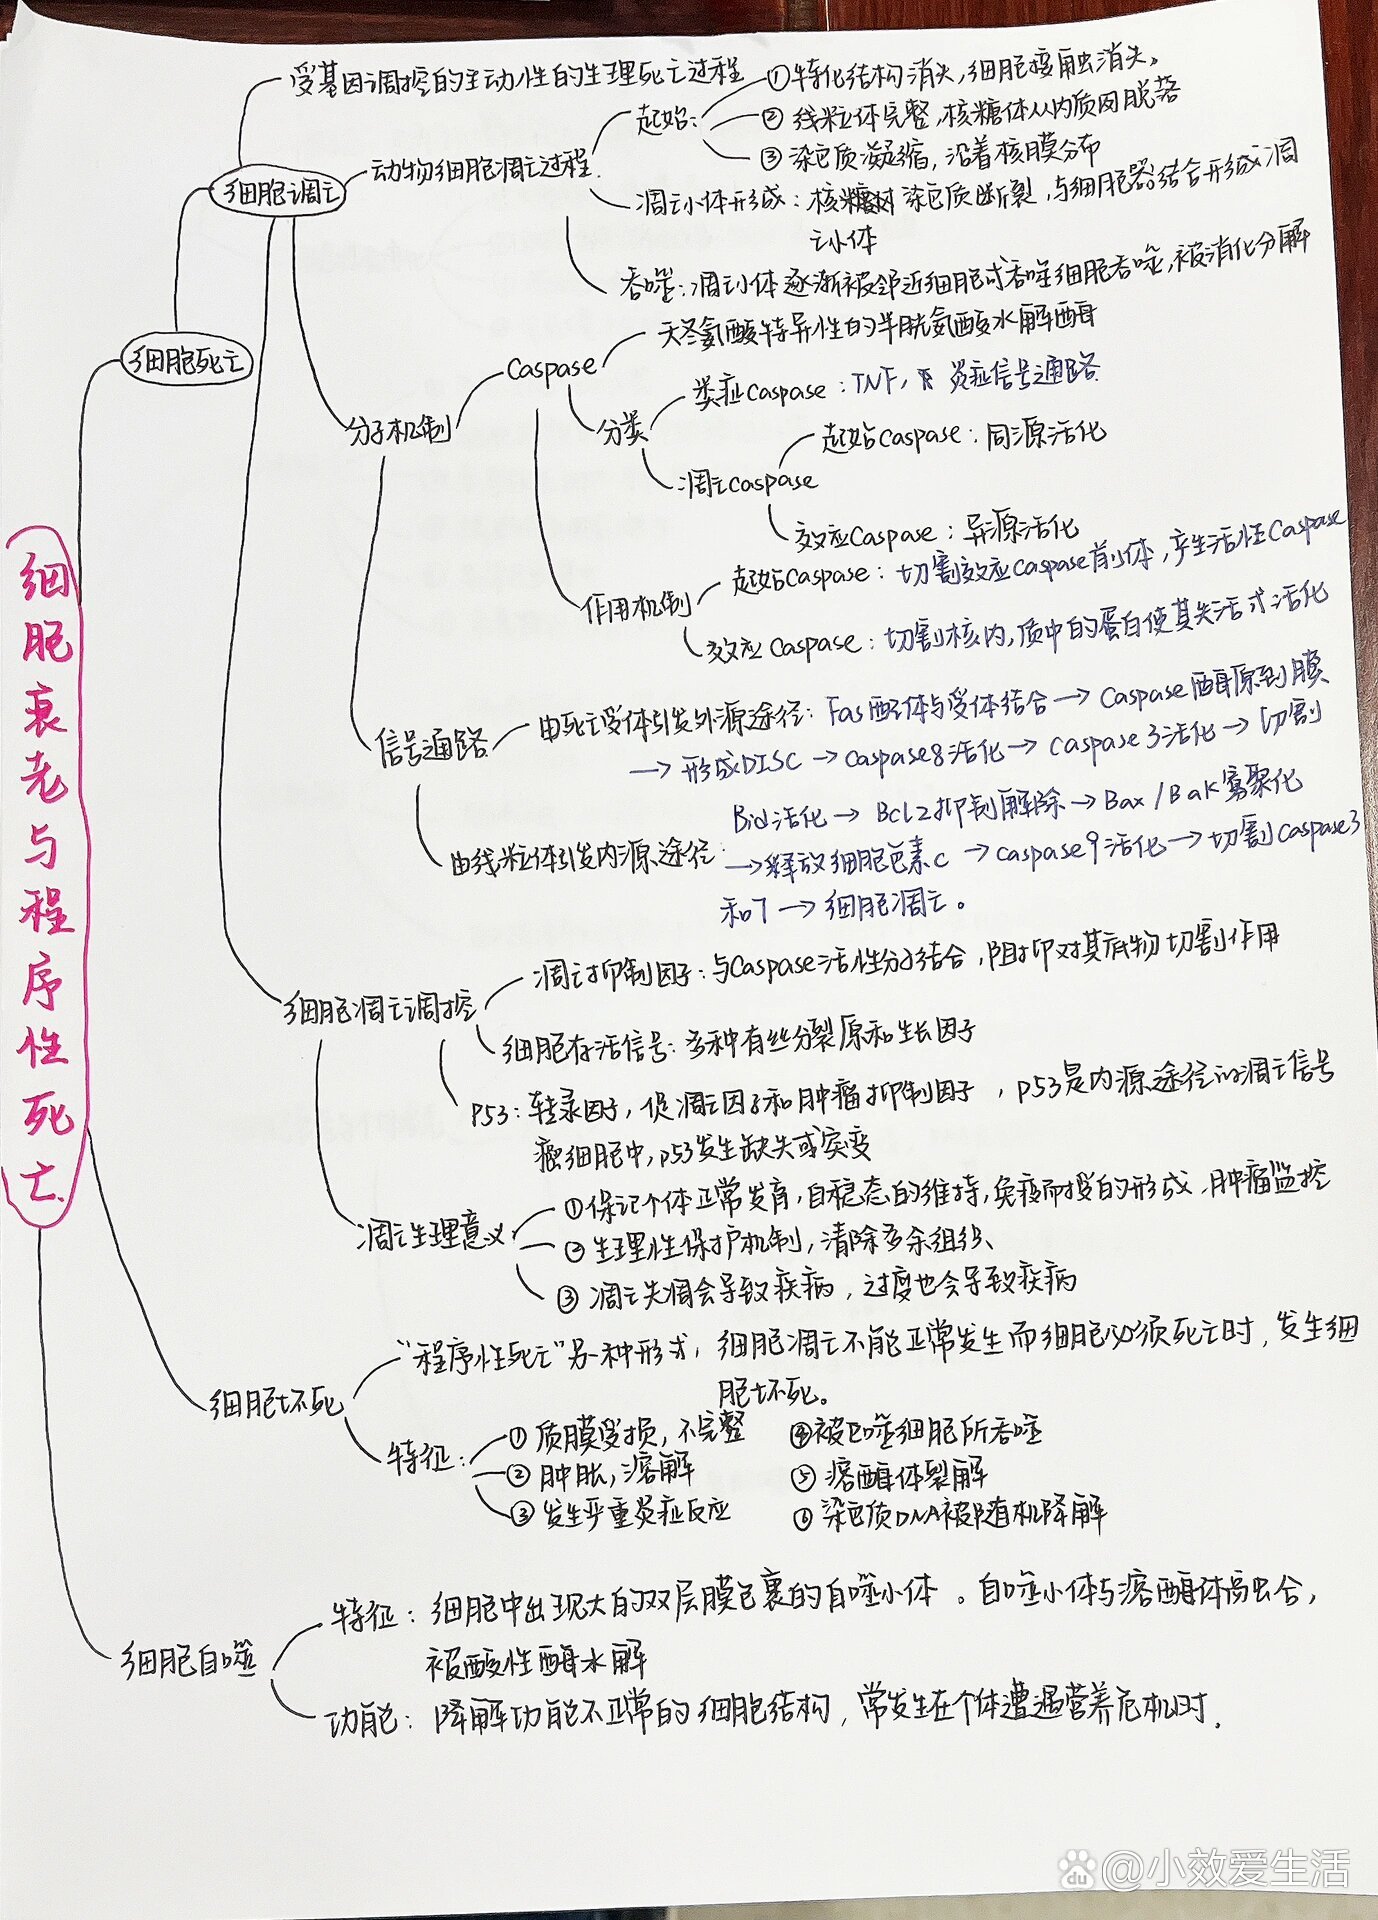 细胞衰老与程序性死亡
受基因调控的主动性的生理死亡过程
起始:
①特化结构消失,细胞接触消失。
②线粒体完整,核糖体从内质网脱落
③染色质凝缩,沿着核膜分布
细胞凋亡
动物细胞凋亡过程.
凋亡小体形成:核 染色质断裂,与细胞器结合形成凋
亡小体
吞噬:凋亡小体逐渐被邻近细胞或吞噬细胞吞噬,被消化分解
细胞死亡
分子机制
Caspase
天冬氨酸特异性的半胱氨酸水解酶
分类
类症Caspase:TNF, 炎症信号通路
凋亡caspase
起始Caspase:同源活化
效应Caspase:异源活化
作用机制
起始Caspase:切割效应Caspase前体,产生活性Caspase
效应Caspase:切割核内,质中的蛋白使其失活或活化
信号通路
由死亡受体引发外源途径:Fas配体与受体结合→Caspase酶原到膜
→形成DISC→Caspase8活化→Caspase3活化→切割
Bid活化→Bcl2抑制解除→Bax/Bak寡聚化
由线粒体引发内源途径:
→释放细胞色素c→caspase9活化→切割caspase3
和7→细胞凋亡。
细胞凋亡调控
凋亡抑制因子:与Caspase活性分子结合,阻抑对其底物切割作用
细胞存活信号:多种有丝分裂原和生长因子
P53:转录因子,促凋亡因子和肿瘤抑制因子,P53是内源途径的凋亡信号
癌细胞中,p53发生缺失或突变
凋亡生理意义
①保证个体正常发育,自稳态的维持,免疫耐授的形成,肿瘤监控
②生理性保护机制,清除多余组织、
③凋亡失调会导致疾病,过度也会导致疾病
细胞坏死
“程序性死亡”另一种形式,细胞凋亡不能正常发生而细胞必须死亡时,发生细
胞坏死。
特征:
①质膜受损,不完整 ④被巨噬细胞所吞噬
②肿胀,溶解 ⑤溶酶体裂解
③发生严重炎症反应 ⑥染色质DNA被随机降解
细胞自噬
特征:细胞中出现大的双层膜包裹的自噬小体。自噬小体与溶酶体融合,
被酸性酶水解
功能:降解功能不正常的细胞结构,常发生在个体遭遇营养危机时.
@小效爱生活